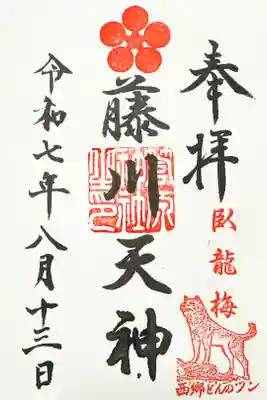 奉拝
臥龍梅
西郷どんのツン
藤川天神
令和七年八月十三日